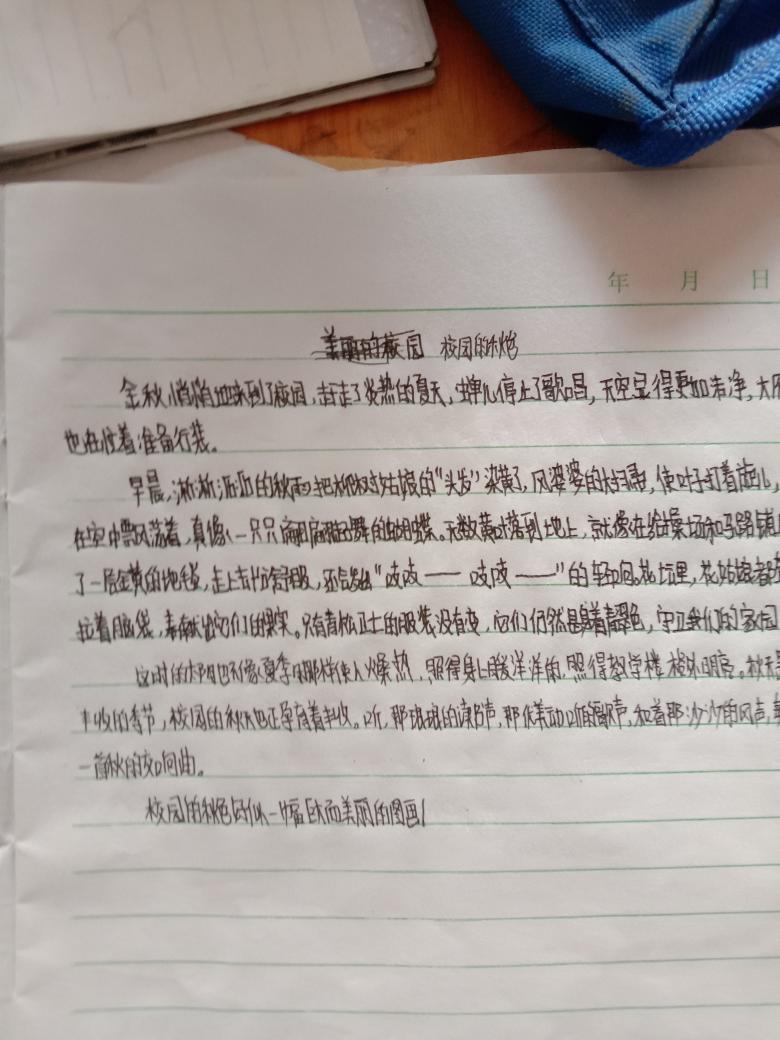 年 月 日
美丽的校园 校园的秋
金秋悄悄地来到了校园,赶走了炎热的夏天,蝉儿停止了歌唱,天空显得更加洁净,大
也在忙着准备行装。
早晨,淅淅沥沥的秋雨把柳树姑娘的“头发”染黄了,风婆婆的大扫帚,使叶子打着旋儿,
在空中飘落着,真像一只只翩翩起舞的蝴蝶。无数黄叶落到地上,就像在给操场和马路铺
了一层金黄的地毯,走上去松软舒服,还会发出“吱吱——吱吱——”的轻响。花坛里,花姑娘都
拉着脑袋,奉献出它们的果实。只有青松卫士的服装没有变,它们仍然是身着青翠色,守卫我们的家园
这时的太阳也不像夏季的那样使人燥热,照得身上暖洋洋的,照得教学楼格外明亮。秋天
丰收的季节,校园的秋天也正孕育着丰收。听,那琅琅的读书声,那优美动听的歌声,和着那沙沙的风声,
一首秋的交响曲。
校园的秋色好似一幅巨大而美丽的图画!